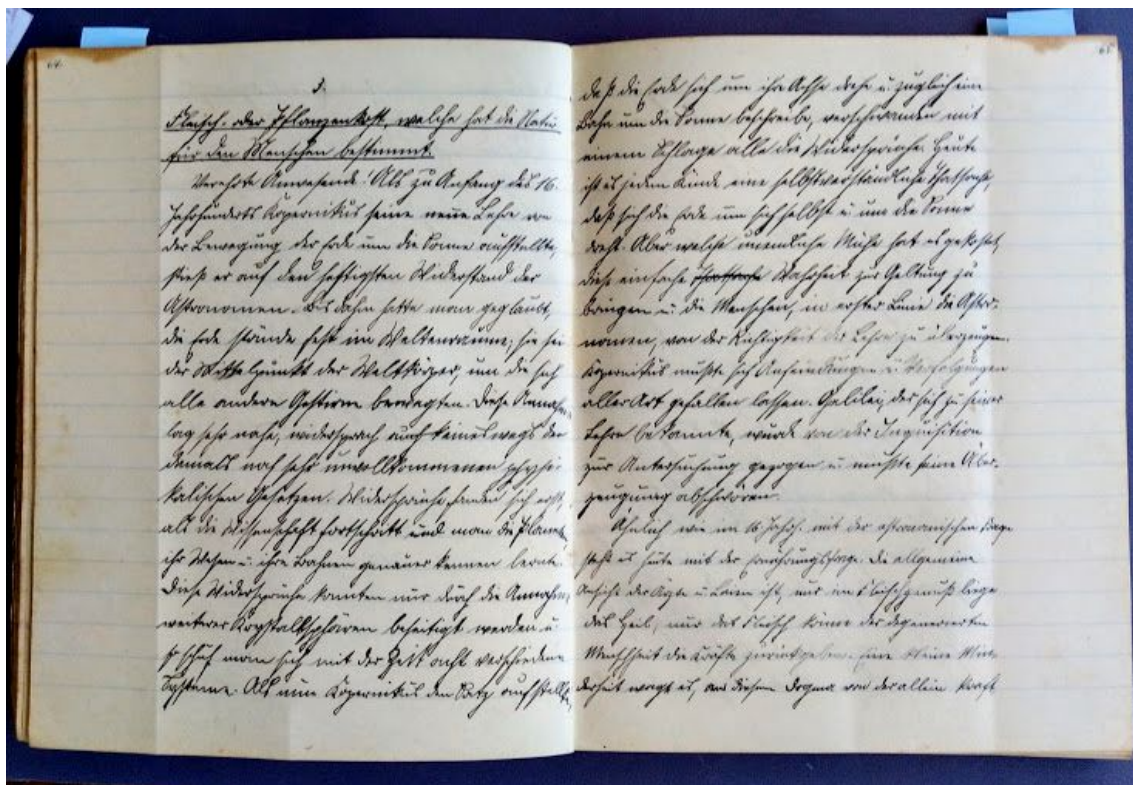 64.
3.
Fleisch- oder Pflanzenkost, welche hat die Natur
für den Menschen bestimmt.
Verehrte Anwesende! Als zu Anfang des 16.
Jahrhunderts Kopernikus seine neue Lehre von
der Bewegung der Erde um die Sonne aufstellte,
stieß er auf den heftigsten Widerstand der
Astronomen. Bis dahin hatte man geglaubt,
die Erde stände fest im Weltenraume; sie sei
der Mittelpunkt der Weltkörper, um die sich
alle andere Gestirne bewegten. Diese Annahme
lag sehr nahe, widersprach auch keineswegs den
damals noch sehr unvollkommenen physi-
kalischen Gesetzen. Widersprüche fanden sich erst,
als die Wissenschaft fortschritt und man die Planeten
ihr Wesen u. ihre Bahnen genauer kennen lernte.
Diese Widersprüche konnten nur durch die Annahme
weiterer Krystallsphären beseitigt werden u.
so schuf man sich mit der Zeit acht verschiedene
Systeme. Als nun Kopernikus den Satz aufstellte,
65
daß die Erde sich um ihre Achse drehe u. zugleich eine
Bahn um die Sonne beschreibe, verschwanden mit
einem Schlage alle die Widersprüche. Heute
ist es jedem Kinde eine selbstverständliche Thatsache,
daß sich die Erde um sich selbst u. um die Sonne
dreht. Aber welche unendliche Mühe hat es gekostet,
diese einfache Thatsache Wahrheit zur Geltung zu
bringen u. die Menschen, in erster Linie die Astro-
nomen, von der Richtigkeit der Lehre zu überzeugen.
Kopernikus mußte sich Anfeindungen u. Verfolgungen
aller Art gefallen lassen. Galilei, der sich zu seiner
Lehre bekannte, wurde von der Inquisition
zur Untersuchung gezogen u. mußte seine Über-
zeugung abschwören.
Ähnlich wie im 16. Jahrh. mit der astronomischen Frage
steht es heute mit der Ernährungsfrage. Die allgemeine
Ansicht der Ärzte u. Laien ist, nur im Fleischgenuß liege
das Heil, nur das Fleisch könne der degenerierten
Menschheit die Kräfte zurückgeben. Eine kleine Min-
derheit wagt es, an diesem Dogma von der allein Kraft